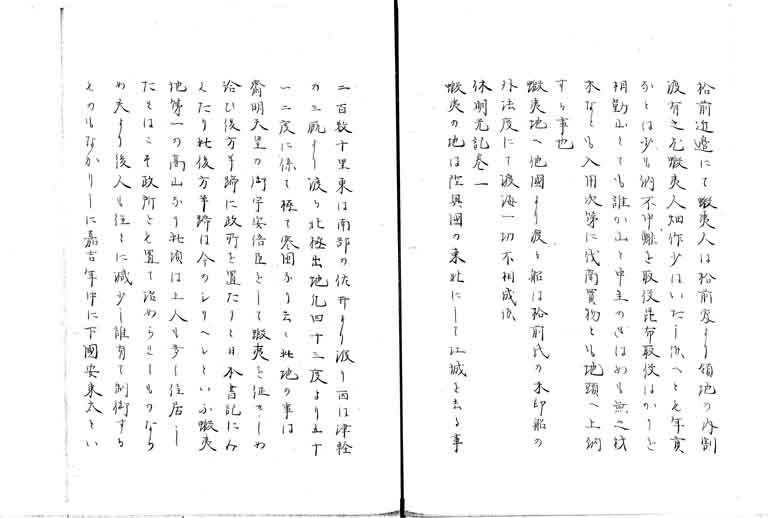 松前近邊にて蝦夷人は松前家より領地の内割
渡有之尤蝦夷人畑作少はいたし候へとも年貢
なとは少も納不申鱈を取役昆布取役はかりを
相勤山とても誰か山と申主のきはめも無之材
木なとも入用次第に伐商買物とも地頭へ上納
する事也
蝦夷地へ他國より渡る船は松前氏の木印船の
外法度にて渡海一切不相成候
休明光記巻一
蝦夷の地は陸奥國の東北にして江城を去る事
二百数十里東は南部の佐井より渡り西は津軽
の三厩より渡る北極出地凡四十二度より五十
一二度に係て極て寒国なり云々此地の事は
齊明天皇の御宇安倍臣をして蝦夷を征せしめ
給ひ後方羊蹄に政所を置たりと日本書記にみ
えたり此後方羊蹄は今のシリヘシといふ蝦夷
地第一の高山なり此頃は土人も多く住居し
たれはこそ政所をも置て治めらせしものなら
め夫より後人も往々に減少し誰有て制御する
ものもなかりしに嘉吉年中に下國安東太とい